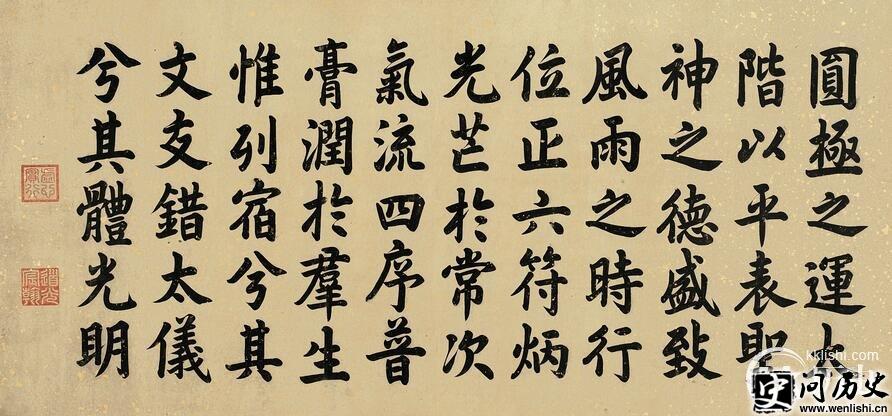 圓極之運太
階以平表聖
神之德盛致
風雨之時行
位正六符炳
光芒於常次
氣流四序普
膏潤於羣生
惟列宿兮其
文友錯太儀
兮其體光明
道光
宸翰
kklishi.com
问历史
www.wenlishi.cn